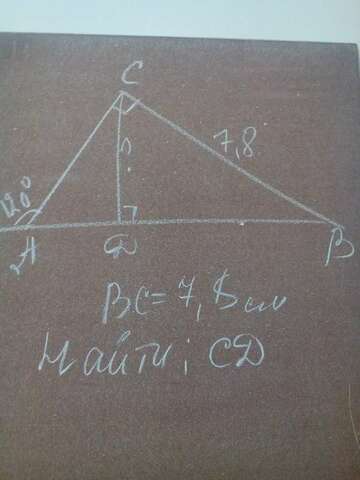 C
7,8
120°
?
A
D
B
BC = 7,8 см
Найти: CD